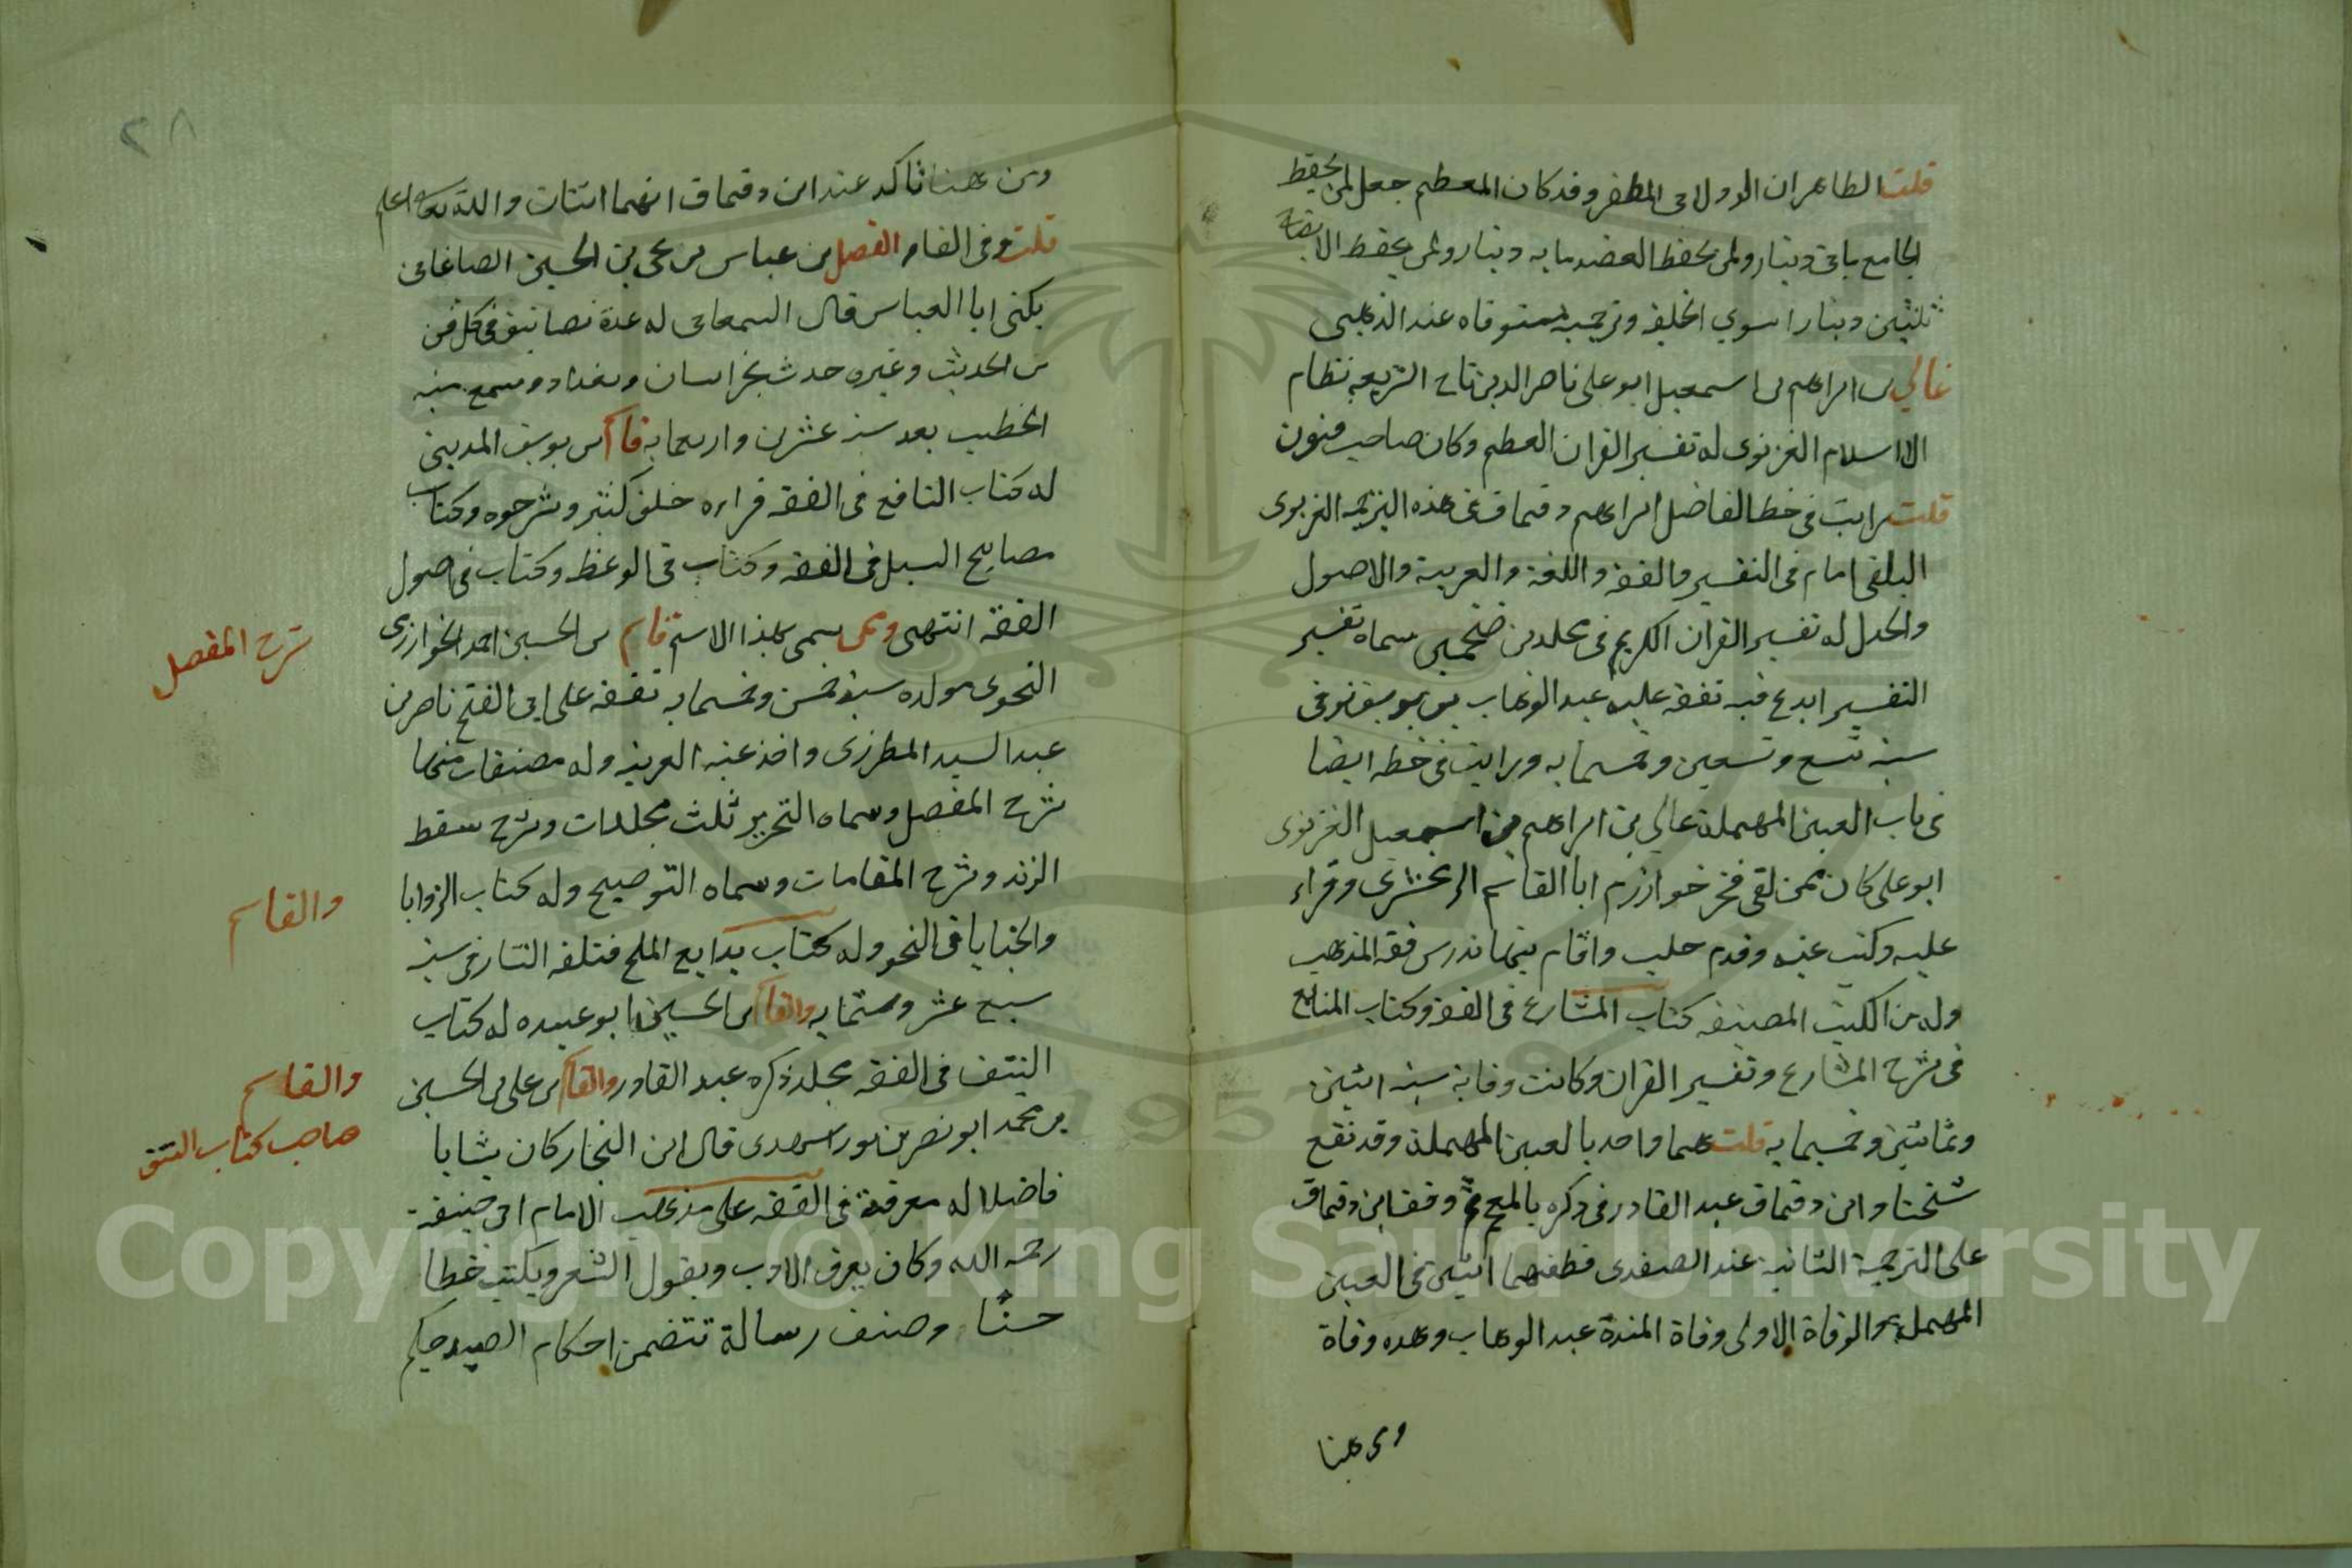 قلت الظاهر ان الدولابى المظفر وقد كان المعظم جعل لمن يحفظ
الجامع بماتى دينار ولمن يحفظ العضد مايه دينار ولمن يحفظ الايضاح
ثلثين دينارا سوي الخلعة وترجمته مستوفاه عند الذهبى
غالي بن ابراهيم بن اسمعيل ابو على ناصر الدين تاج الشريعه نظام
الاسلام الغزنوى له تفسير القران العظيم وكان صاحب فنون
قلت رايت فى خط الفاضل ابراهيم دقماق فى هذه الترجمه الغزنوى
البلقى امام فى التفسير والفقه واللغة والعربية والاصول
والجدل له تفسير القران الكريم فى مجلدين ضخمين سماه تفسير
التفسير ابدع فيه تفقه عليه عبد الوهاب بن يوسف توفى
سنة تسع وتسعين وخمسمايه ورايت فى خطه ايضا
فى باب العين المهملة عالي بن ابراهيم بن اسمعيل الغزنوى
ابو على كان ممن لقى فخر خوارزم ابا القاسم الزمخشرى وقراء
عليه وكتب عنه وقدم حلب واقام بها ندرس فقه المذهب
وله من الكتب المصنفه كتاب المشارع فى الفقه وكتاب المنابع
فى شرح المشارع وتفسير القران وكانت وفاته سنه اثنين
وثمانين وخمسمايه قلت هما واحد بالعين المهملة وقد تقع
شيخنا وابن دقماق عبد القادر فى ذكره بالمعجم وقف ابن دقماق
على الترجمة الثانيه عند الصفدى فظنهما اثنين فى العين
المهملة والوفاة الاولى وفاة عبد الوهاب وهده وفاة
ومن هنا
٢٨
ومن هنا تاكد عند ابن دقماق انهما اثنان والله تعالى اعلم
قلت وفى الفاء الفضل بن عباس بن يحى بن الحسين الصاغانى
يكنى ابا العباس قال السمعانى له عدة تصانيف فى كل فن
من الحديث وغيره حدث بخراسان وبغداد وسمع منه
الخطيب بعد سنة عشرين واربعمايه قاسم بن يوسف المدينى
له كتاب النافع فى الفقه قراءه خلق كثير وشرحوه وكتاب
مصابيح السبل فى الفقه وكتاب فى الوعظ وكتاب فى اصول
الفقه انتهى وممن يسمى بهذا الاسم قاسم بن الحسين احمد الخوارزمى
النحوى مولده سنة خمس وخمسمايه تفقه على ابى الفتح ناصر بن
عبد السيد المطرزى واخذ عنه العربيه وله مصنفات منها
شرح المفصل وسماه التحرير ثلث مجلدات وشرح سقط
الزند وشرح المقامات وسماه التوضيح وله كتاب الزوايا
والخبايا فى النحو وله كتاب بدايع الملح قتلته التتار فى سنة
سبع عشر وستمايه والقاسم بن الحسين ابو عبيده له كتاب
النتف فى الفقه مجلد ذكره عبد القادر والقاسم بن على بن الحسين
بن محمد ابو نصر بن نور الهدى قال ابن النجار كان شابا
فاضلا له معرفة فى الفقه على مذهب الامام ابى حنيفة
رحمه الله وكان يعرف الادب ويقول الشعر ويكتب خطا
حسنا وصنف رسالة تتضمن احكام الصيد
شرح المفصل
والقاسم
والقاسم
صاحب كتاب النتف
Copyright © King Saud University
1957